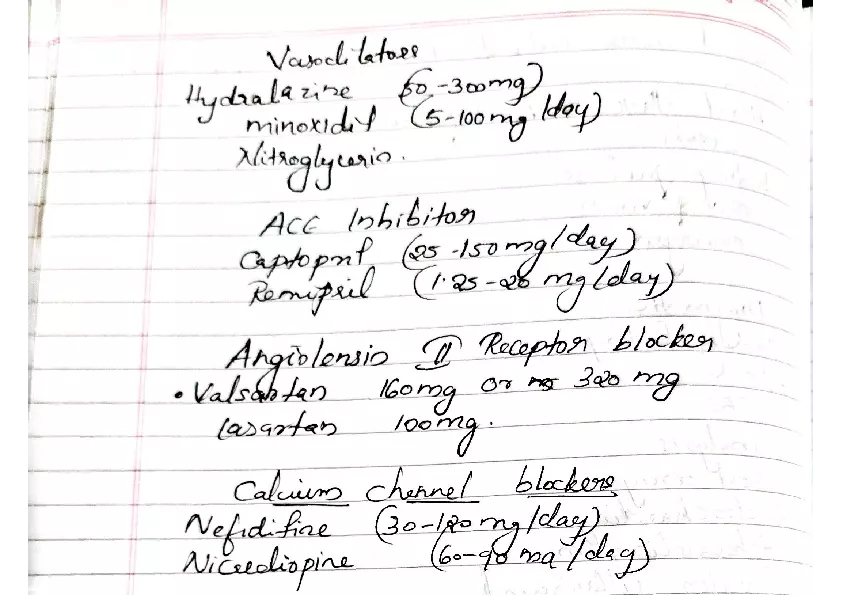 Vasodilators
Hydralazine (50-300mg)
minoxidil (5-100mg/day)
Nitroglycerin.
ACE Inhibitor
Captopril (25-150mg/day)
Remipril (1.25-20 mg/day)
Angiotensin II Receptor blocker
• Valsartan 160mg or 320 mg
Losartan 100mg.
Calcium Channel blockers
Nefidifine (30-120mg/day)
(60-90 mg/day)